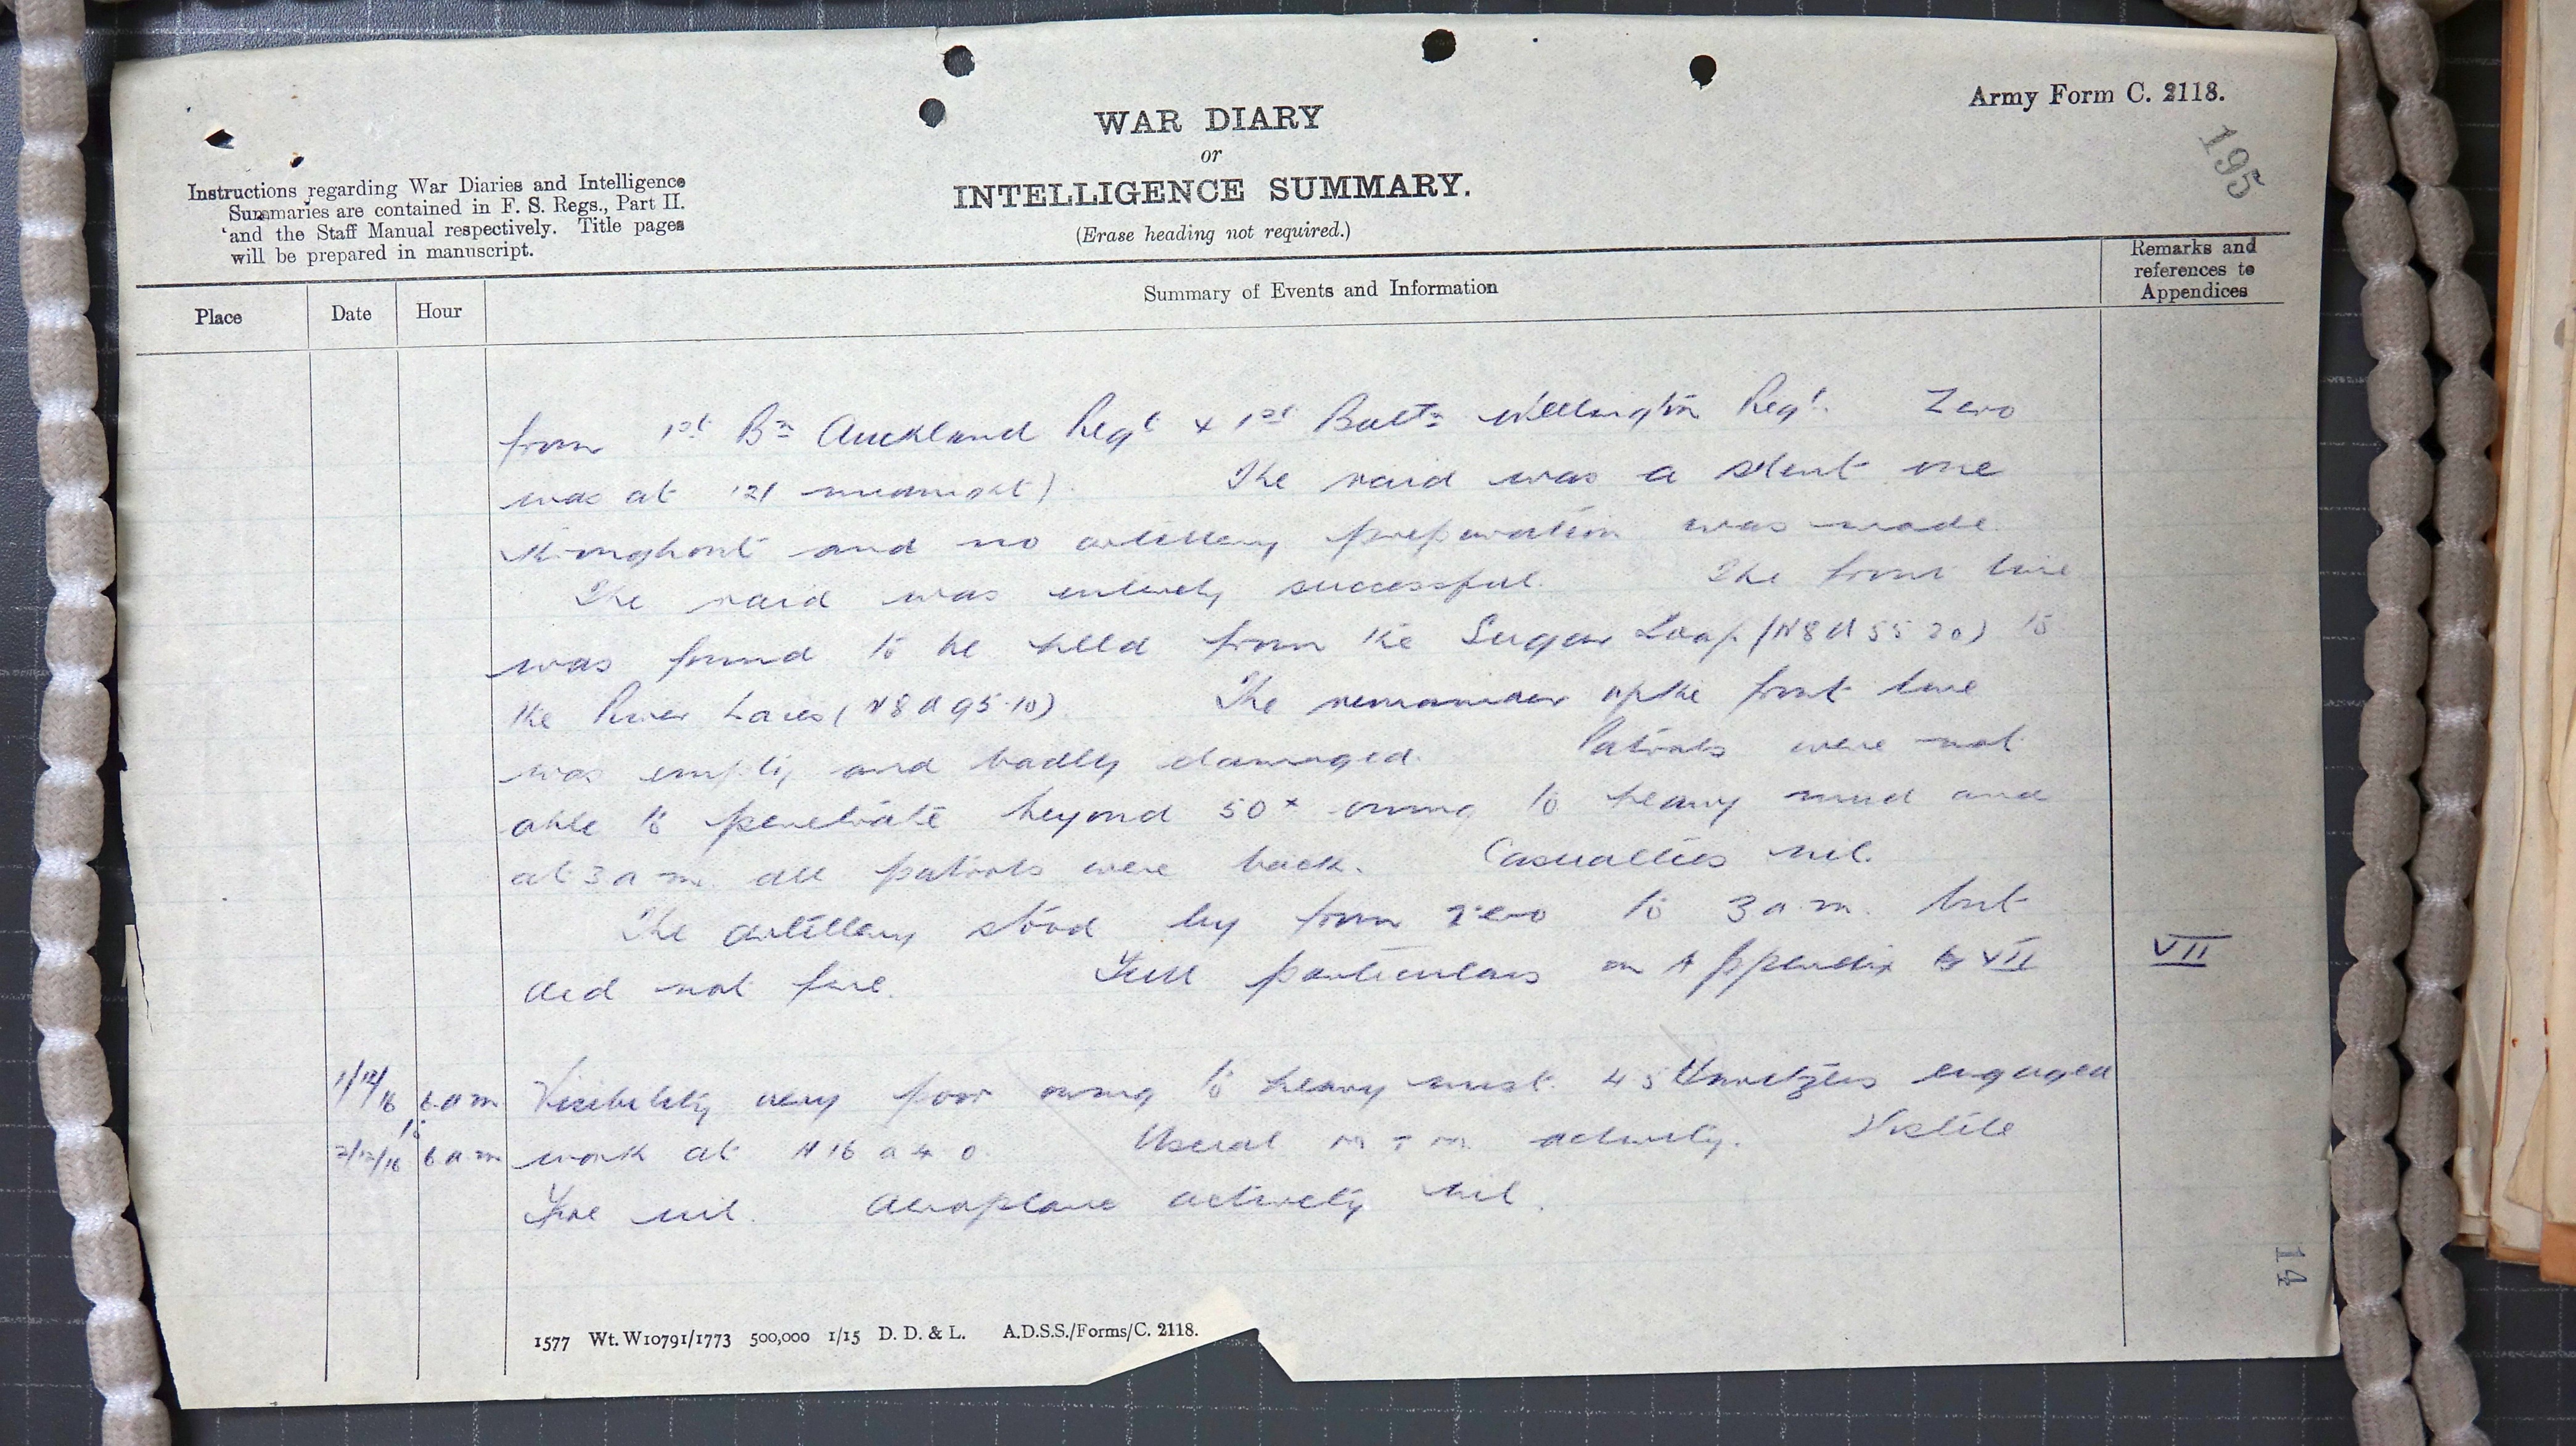 Army Form C. 2118.
195
WAR DIARY
or
INTELLIGENCE SUMMARY.
(Erase heading not required.)
Instructions regarding War Diaries and Intelligence
Summaries are contained in F. S. Regs., Part II.
and the Staff Manual respectively. Title pages
will be prepared in manuscript.
Place Date Hour Summary of Events and Information Remarks and
references to
Appendices
from 1st Bn Auckland Regt + 1st Battn Wellington Regt. Zero
was at 12 midnight). The raid was a silent one
throughout and no artillery preparation was made.
The raid was entirely successful. The front line
was found to be held from the Sugar Loaf (N8d 55 20) to
the River Laies (N8d 95.10). The remainder of the front line
was empty and badly damaged. Patrols were not
able to penetrate beyond 50x owing to heavy mud and
at 3 a.m. all patrols were back. Casualties nil.
The artillery stood by from zero to 3 a.m. but
did not fire. Full particulars on Appendix VII VII
1/12/16 6 a.m. Visibility very poor owing to heavy mist. 4.5 Howitzers engaged
to
2/12/16 6 a.m. work at N16 a 4 0. Usual M T M activity. Hostile
Fire nil. Aeroplane activity nil.
14
1577 Wt. W10791/1773 500,000 1/15 D. D. & L. A.D.S.S./Forms/C. 2118.